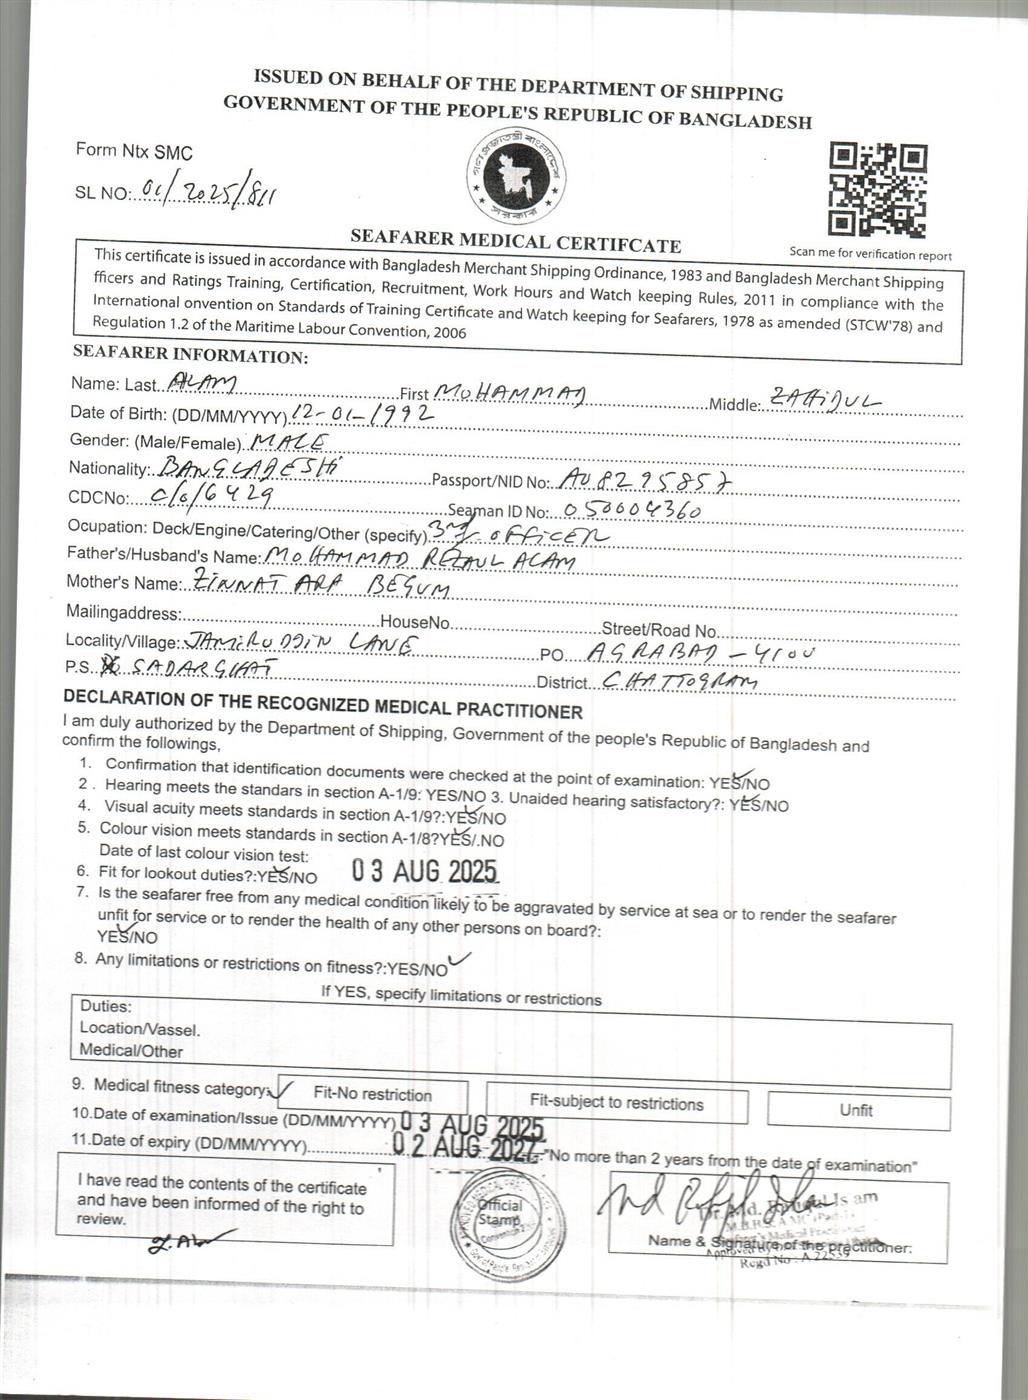 ISSUED ON BEHALF OF THE DEPARTMENT OF SHIPPING
GOVERNMENT OF THE PEOPLE'S REPUBLIC OF BANGLADESH
Form Ntx SMC
SL NO: 01/2025/811
গণপ্রজাতন্ত্রী বাংলাদেশ
সরকার
Scan me for verification report
SEAFARER MEDICAL CERTIFCATE
This certificate is issued in accordance with Bangladesh Merchant Shipping Ordinance, 1983 and Bangladesh Merchant Shipping
fficers and Ratings Training, Certification, Recruitment, Work Hours and Watch keeping Rules, 2011 in compliance with the
International onvention on Standards of Training Certificate and Watch keeping for Seafarers, 1978 as amended (STCW'78) and
Regulation 1.2 of the Maritime Labour Convention, 2006
SEAFARER INFORMATION:
Name: Last ALAM First MOHAMMAD Middle: ZAHIDUL
Date of Birth: (DD/MM/YYYY) 12-01-1992
Gender: (Male/Female) MALE
Nationality: BANGLADESHI Passport/NID No: A08295857
CDCNo: C/0/6429 Seaman ID No: 050004360
Ocupation: Deck/Engine/Catering/Other (specify) 3rd OFFICER
Father's/Husband's Name: MOHAMMAD REZAUL ALAM
Mother's Name: ZINNAT ARA BEGUM
Mailingaddress: HouseNo Street/Road No
Locality/Village: JAMIRUDDIN LANE PO AGRABAD - 4100
P.S. SADARGHAT District CHATTOGRAM
DECLARATION OF THE RECOGNIZED MEDICAL PRACTITIONER
I am duly authorized by the Department of Shipping, Government of the people's Republic of Bangladesh and
confirm the followings,
1. Confirmation that identification documents were checked at the point of examination: YES/NO
2 . Hearing meets the standars in section A-1/9: YES/NO 3. Unaided hearing satisfactory?: YES/NO
4. Visual acuity meets standards in section A-1/9?:YES/NO
5. Colour vision meets standards in section A-1/8?YES/.NO
Date of last colour vision test: 03 AUG 2025
6. Fit for lookout duties?:YES/NO
7. Is the seafarer free from any medical condition likely to be aggravated by service at sea or to render the seafarer
unfit for service or to render the health of any other persons on board?:
YES/NO
8. Any limitations or restrictions on fitness?:YES/NO
If YES, specify limitations or restrictions
Duties:
Location/Vassel.
Medical/Other
9. Medical fitness category: Fit-No restriction Fit-subject to restrictions Unfit
10.Date of examination/Issue (DD/MM/YYYY) 03 AUG 2025
11.Date of expiry (DD/MM/YYYY) 02 AUG 2027 "No more than 2 years from the date of examination"
I have read the contents of the certificate
and have been informed of the right to
review.
Official
Stamp
Name & Signature of the practitioner:
Regd No : A 22539